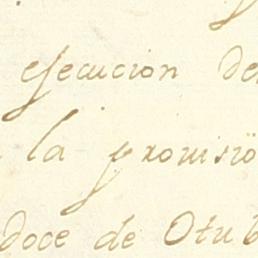 ejecucion de
la provisiõ
doce de Otub